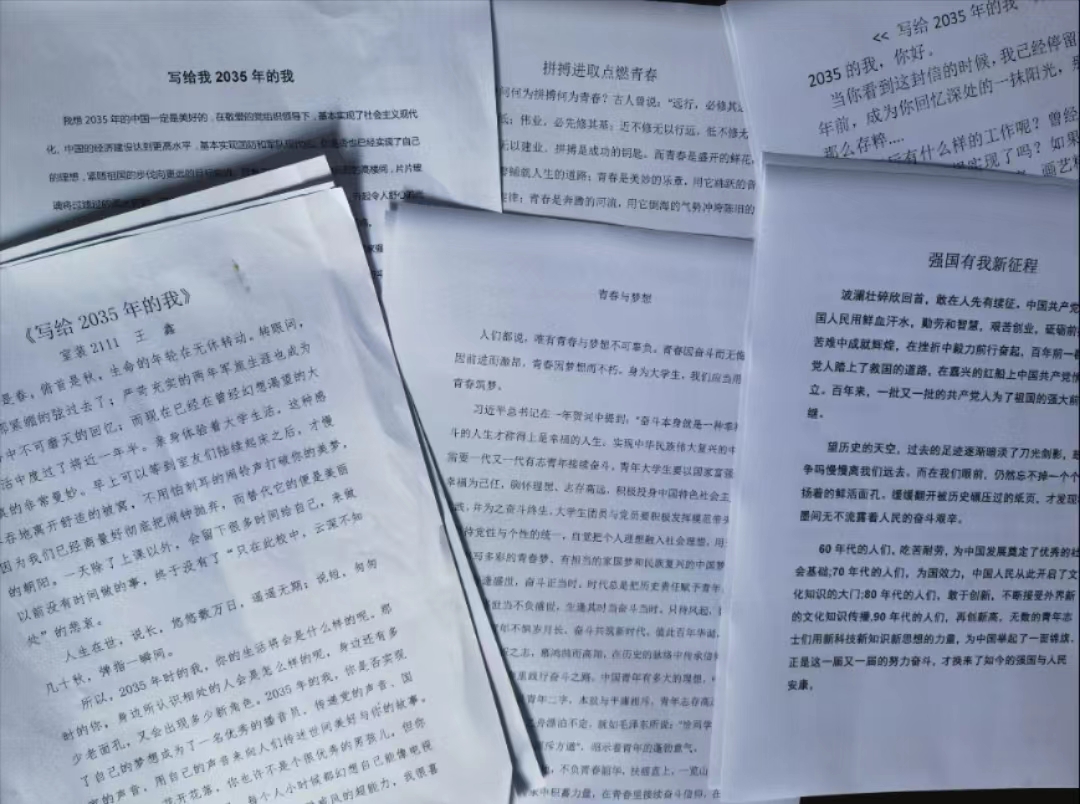 写给我 2035 年的我
我想 2035 年的中国一定是美好的，在敬爱的党组织领导下，基本实现了社会主义现代
化、中国的经济建设达到更高水平，基本实现国防和军队现代化
的理想，紧随祖国的步伐向更
拼搏进取点燃青春
何为拼搏何为青春？古人曾说：“远行，必修其
伟业，必先修其基；近不修无以行远，低不修无
以建业。拼搏是成功的钥匙。而青春是盛开的鲜花，
铺就人生的道路；青春是美妙的乐章，用它跳跃的音
律；青春是奔腾的河流，用它倒海的气势冲垮陈旧的
<< 写给 2035 年的我
2035 的我，你好。
当你看到这封信的时候，我已经停留
年前，成为你回忆深处的一抹阳光，
那么存粹....
有什么样的工作呢？曾经
实现了吗？如果
《写给 2035 年的我》
室装 2111 王 鑫
是春，俯首是秋，生命的年轮在无休转动。转眼间，
那紧绷的弦过去了；严苛充实的两年军旅生涯也成为
中不可磨灭的回忆；而现在已经在曾经幻想渴望的大
活中度过了将近一年半。亲身体验着大学生活，这种感
真的非常曼妙。早上可以等到室友们陆续起床之后，才慢
吞地离开舒适的被窝，不用怕刺耳的闹铃声打破你的美梦，
因为我们已经商量好彻底把闹钟抛弃，而替代它的便是美丽
的朝阳。一天除了上课以外，会留下很多时间给自己，来做
以前没有时间做的事，终于没有了“只在此校中，云深不知
处”的悲哀。
人生在世，说长，悠悠数万日，遥遥无期；说短，匆匆
几十秋，弹指一瞬间。
所以，2035 年时的我，你的生活将会是什么样的呢，那
时的你，身边所认识相处的人会是怎么样的呢，身边还有多
少老面孔，又会出现多少新角色。2035 年的我，你是否实现
了自己的梦想成为了一名优秀的播音员，传递党的声音、国
家的声音，用自己的声音来向人们传述世间美好与你的故事。
花开花落，你也许不是个很优秀的男孩儿，但你
每个人小时候都幻想自己能像电视
威风的超能力，我很喜
青春与梦想
人们都说，唯有青春与梦想不可辜负。青春因奋斗而无悔
因前进而激昂，青春因梦想而不朽。身为大学生，我们应当用
青春筑梦。
习近平总书记在一年贺词中提到：“奋斗本身就是一种幸福
斗的人生才称得上是幸福的人生。实现中华民族伟大复兴的中
需要一代又一代有志青年接续奋斗。青年大学生要以国家富强
幸福为己任，胸怀理想、志存高远，积极投身中国特色社会主
践，并为之奋斗终生。大学生团员与党员要积极发挥模范带头
持党性与个性的统一，自觉把个人理想融入社会理想，用
写多彩的青春梦、有担当的家国梦和民族复兴的中国梦
逢盛世，奋斗正当时。时代总是把历史责任赋予青年
世当不负盛世，生逢其时当奋斗当时。只待风起，
年不惧岁月长、奋斗共筑新时代。值此百年华诞，
之志，慕鸿鹄而高翔，在历史的脉络中传承信仰
里践行奋斗之路。中国青年有多大的理想，
青年二字，本就与平庸相斥。青年志存高远
舟漂泊不定。就如毛泽东所说：“恰同学
斥方遒”，昭示着青年的蓬勃意气。
不负青春韶华，扶摇直上，一览山
中积蓄力量，在青春里接续奋斗信仰，在
强国有我新征程
波澜壮碎欣回首，敢在人先有续征。中国共产党
国人民用鲜血汗水，勤劳和智慧，艰苦创业，砥砺前
苦难中成就辉煌，在挫折中毅力前行奋起，百年前一群
党人踏上了救国的道路，在嘉兴的红船上中国共产党
立。百年来，一批又一批的共产党人为了祖国的强大前
继。
望历史的天空，过去的足迹逐渐暗淡了刀光剑影，
争吗慢慢离我们远去，而在我们眼前，仍然忘不掉一个个
扬着的鲜活面孔，缓缓翻开被历史碾压过的纸页，才发现
墨间无不流露着人民的奋斗艰辛。
60 年代的人们，吃苦耐劳，为中国发展奠定了优秀的社
会基础;70 年代的人们，为国效力，中国人民从此开启了文
化知识的大门;80 年代的人们，敢于创新，不断接受外界新
的文化知识传播,90 年代的人们，再创新高，无数的青年志
士们用新科技新知识新思想的力量，为中国举起了一面锦旗，
正是这一届又一届的努力奋斗，才换来了如今的强国与人民
安康。